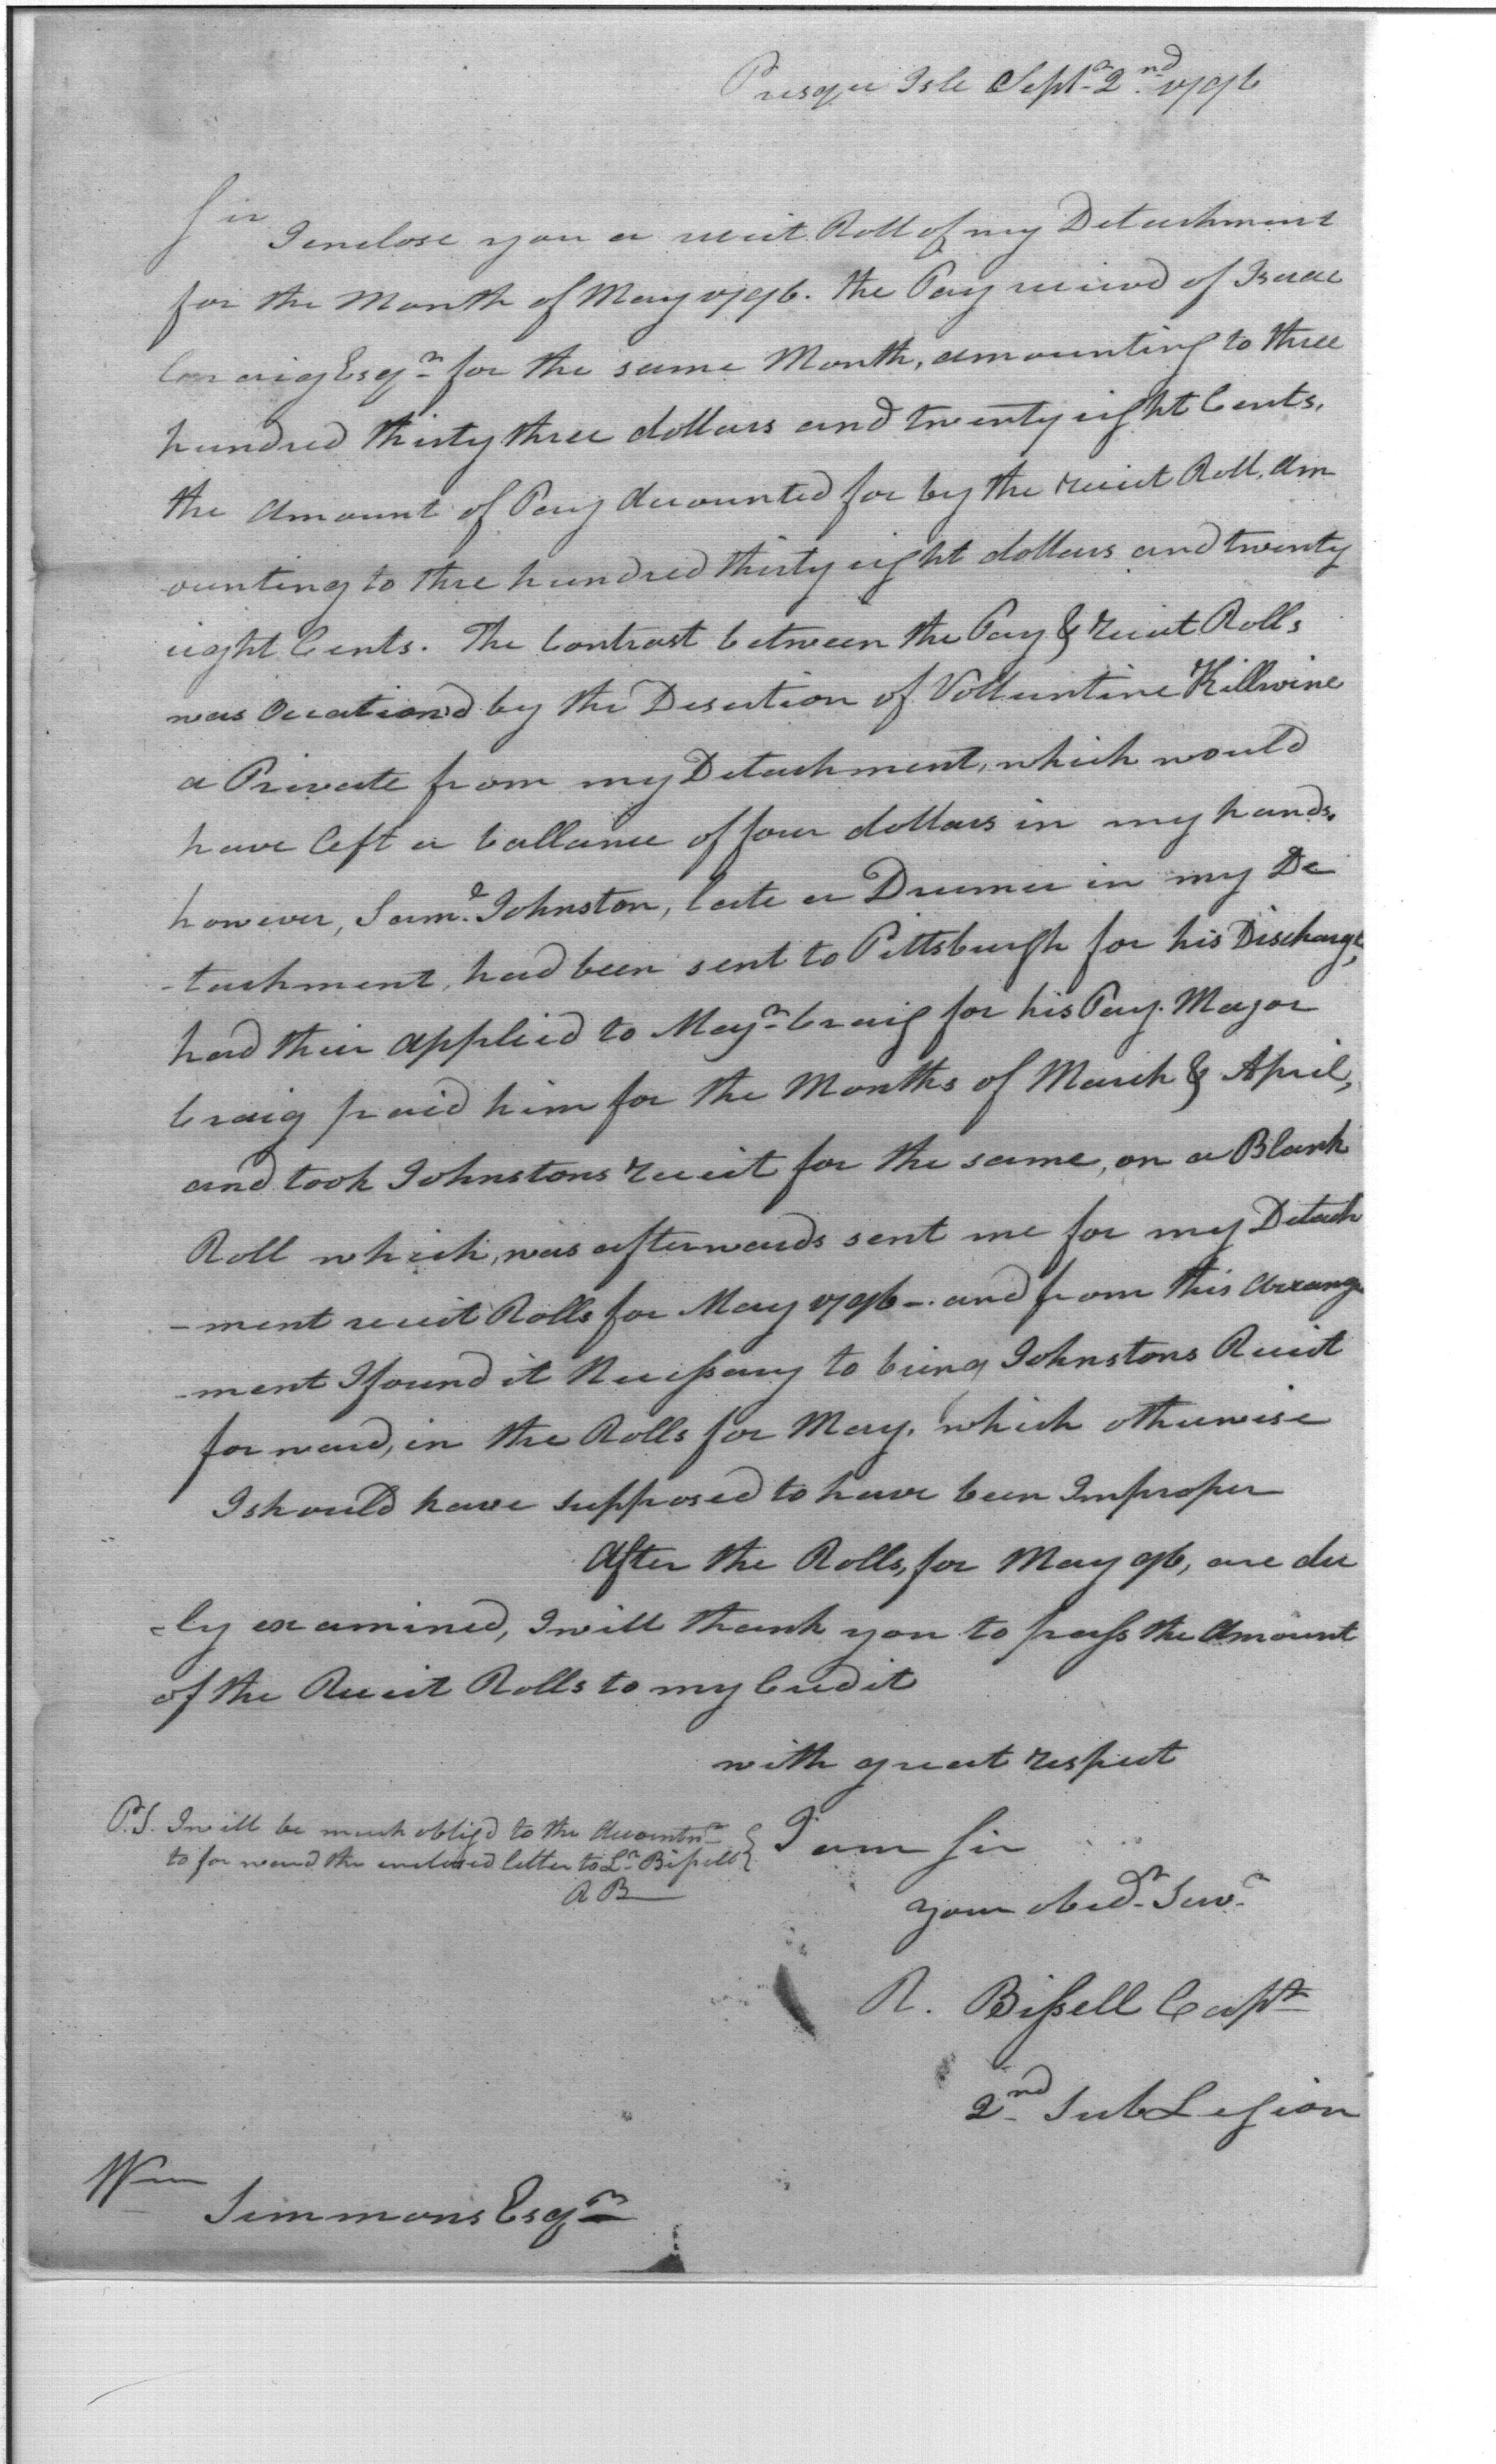 Presque Isle Septr 2nd 1796
Sir
I enclose you a receit Roll of my Detachment
for the Month of May 1796. the Pay receivd of Isaac
Craig Esqr for the same Month, amounting to three
hundred thirty three dollars and twenty eight Cents,
the Amount of Pay Accounted for by the receit Roll, Am
ounting to thre hundred thirty eight dollars and twenty
eight Cents. The Contrast between the Pay & receit Rolls
was Occationd by the Desertion of Volluntine Killwine
a Private from my Detachment, which would
have left a ballance of four dollars in my hands.
however, Saml Johnston, late a Drumer in my De
-tachment, had been sent to Pittsburgh for his Discharge,
had their applied to Majr Craig for his Pay. Major
Craig paid him for the Months of March & April,
and took Johnstons receit for the same, on a Blank
Roll which, was afterwards sent me for my Detach
-ment receit Rolls for May 1796 -. and from this Arrange
-ment I found it Necessary to bring Johnstons Receit
forward, in the Rolls for May, which otherwise
I should have supposed to have been Improper
After the Rolls, for May 96, are du
-ly examined, I will thank you to pass the Amount
of the Receit Rolls to my Credit
with great respect
I am Sir
your obedt Servt
R. Bissell Capt
2nd Sub Legion
P.S. I will be much obligd to the Accountnt
to forward the enclosed letter to Lt Bissell
R B
Wm
Simmons Esqr